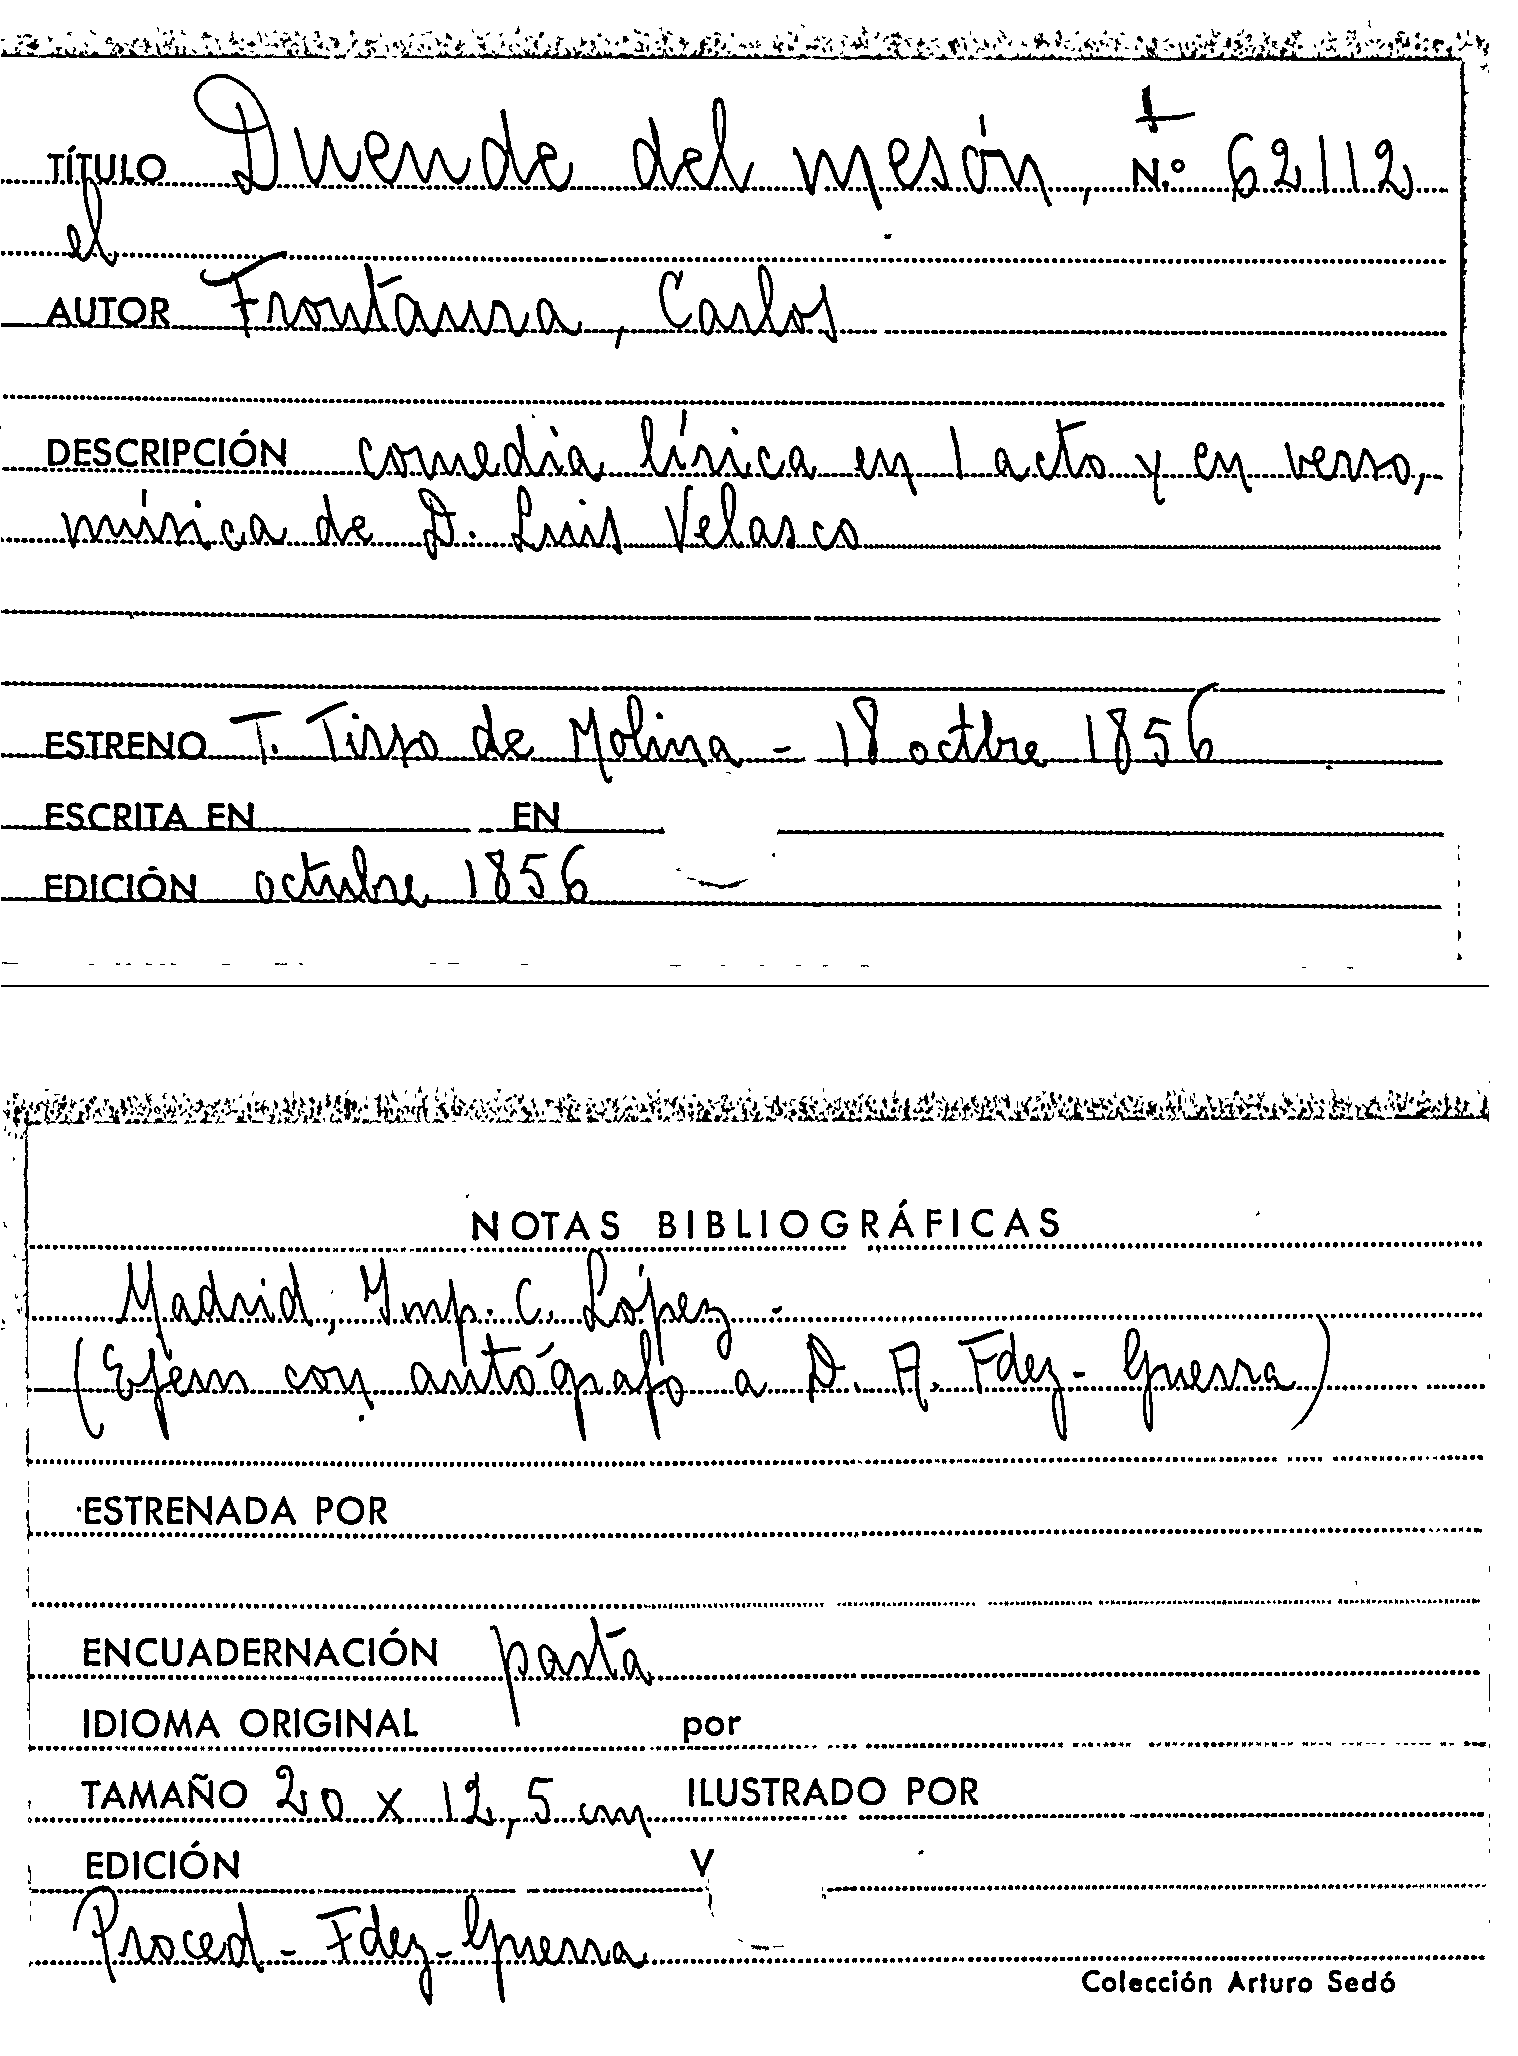 TÍTULO Duende del mesón, N.º 62112
el
AUTOR Frontaura, Carlos
DESCRIPCIÓN comedia lírica en 1 acto y en verso,
música de D. Luis Velasco
ESTRENO T. Tirso de Molina - 18 octbre 1856
ESCRITA EN EN
EDICIÓN octubre 1856
NOTAS BIBLIOGRÁFICAS
Madrid, Imp. C. López -
(Ejem con autógrafo a D. A. Fdez-Guerra)
ESTRENADA POR
ENCUADERNACIÓN pasta
IDIOMA ORIGINAL por
TAMAÑO 20 x 12,5 cm ILUSTRADO POR
EDICIÓN V
Proced - Fdez-Guerra
Colección Arturo Sedó